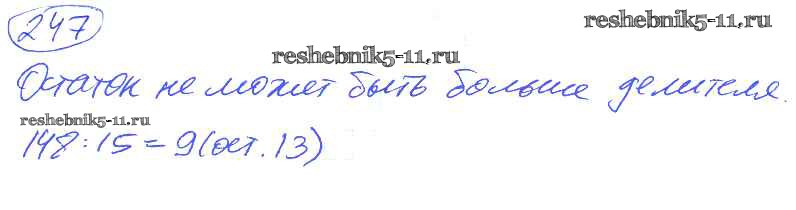 247
reshebnik5-11.ru
reshebnik5-11.ru
Остаток не может быть больше делителя.
reshebnik5-11.ru
148:15=9(ост.13)